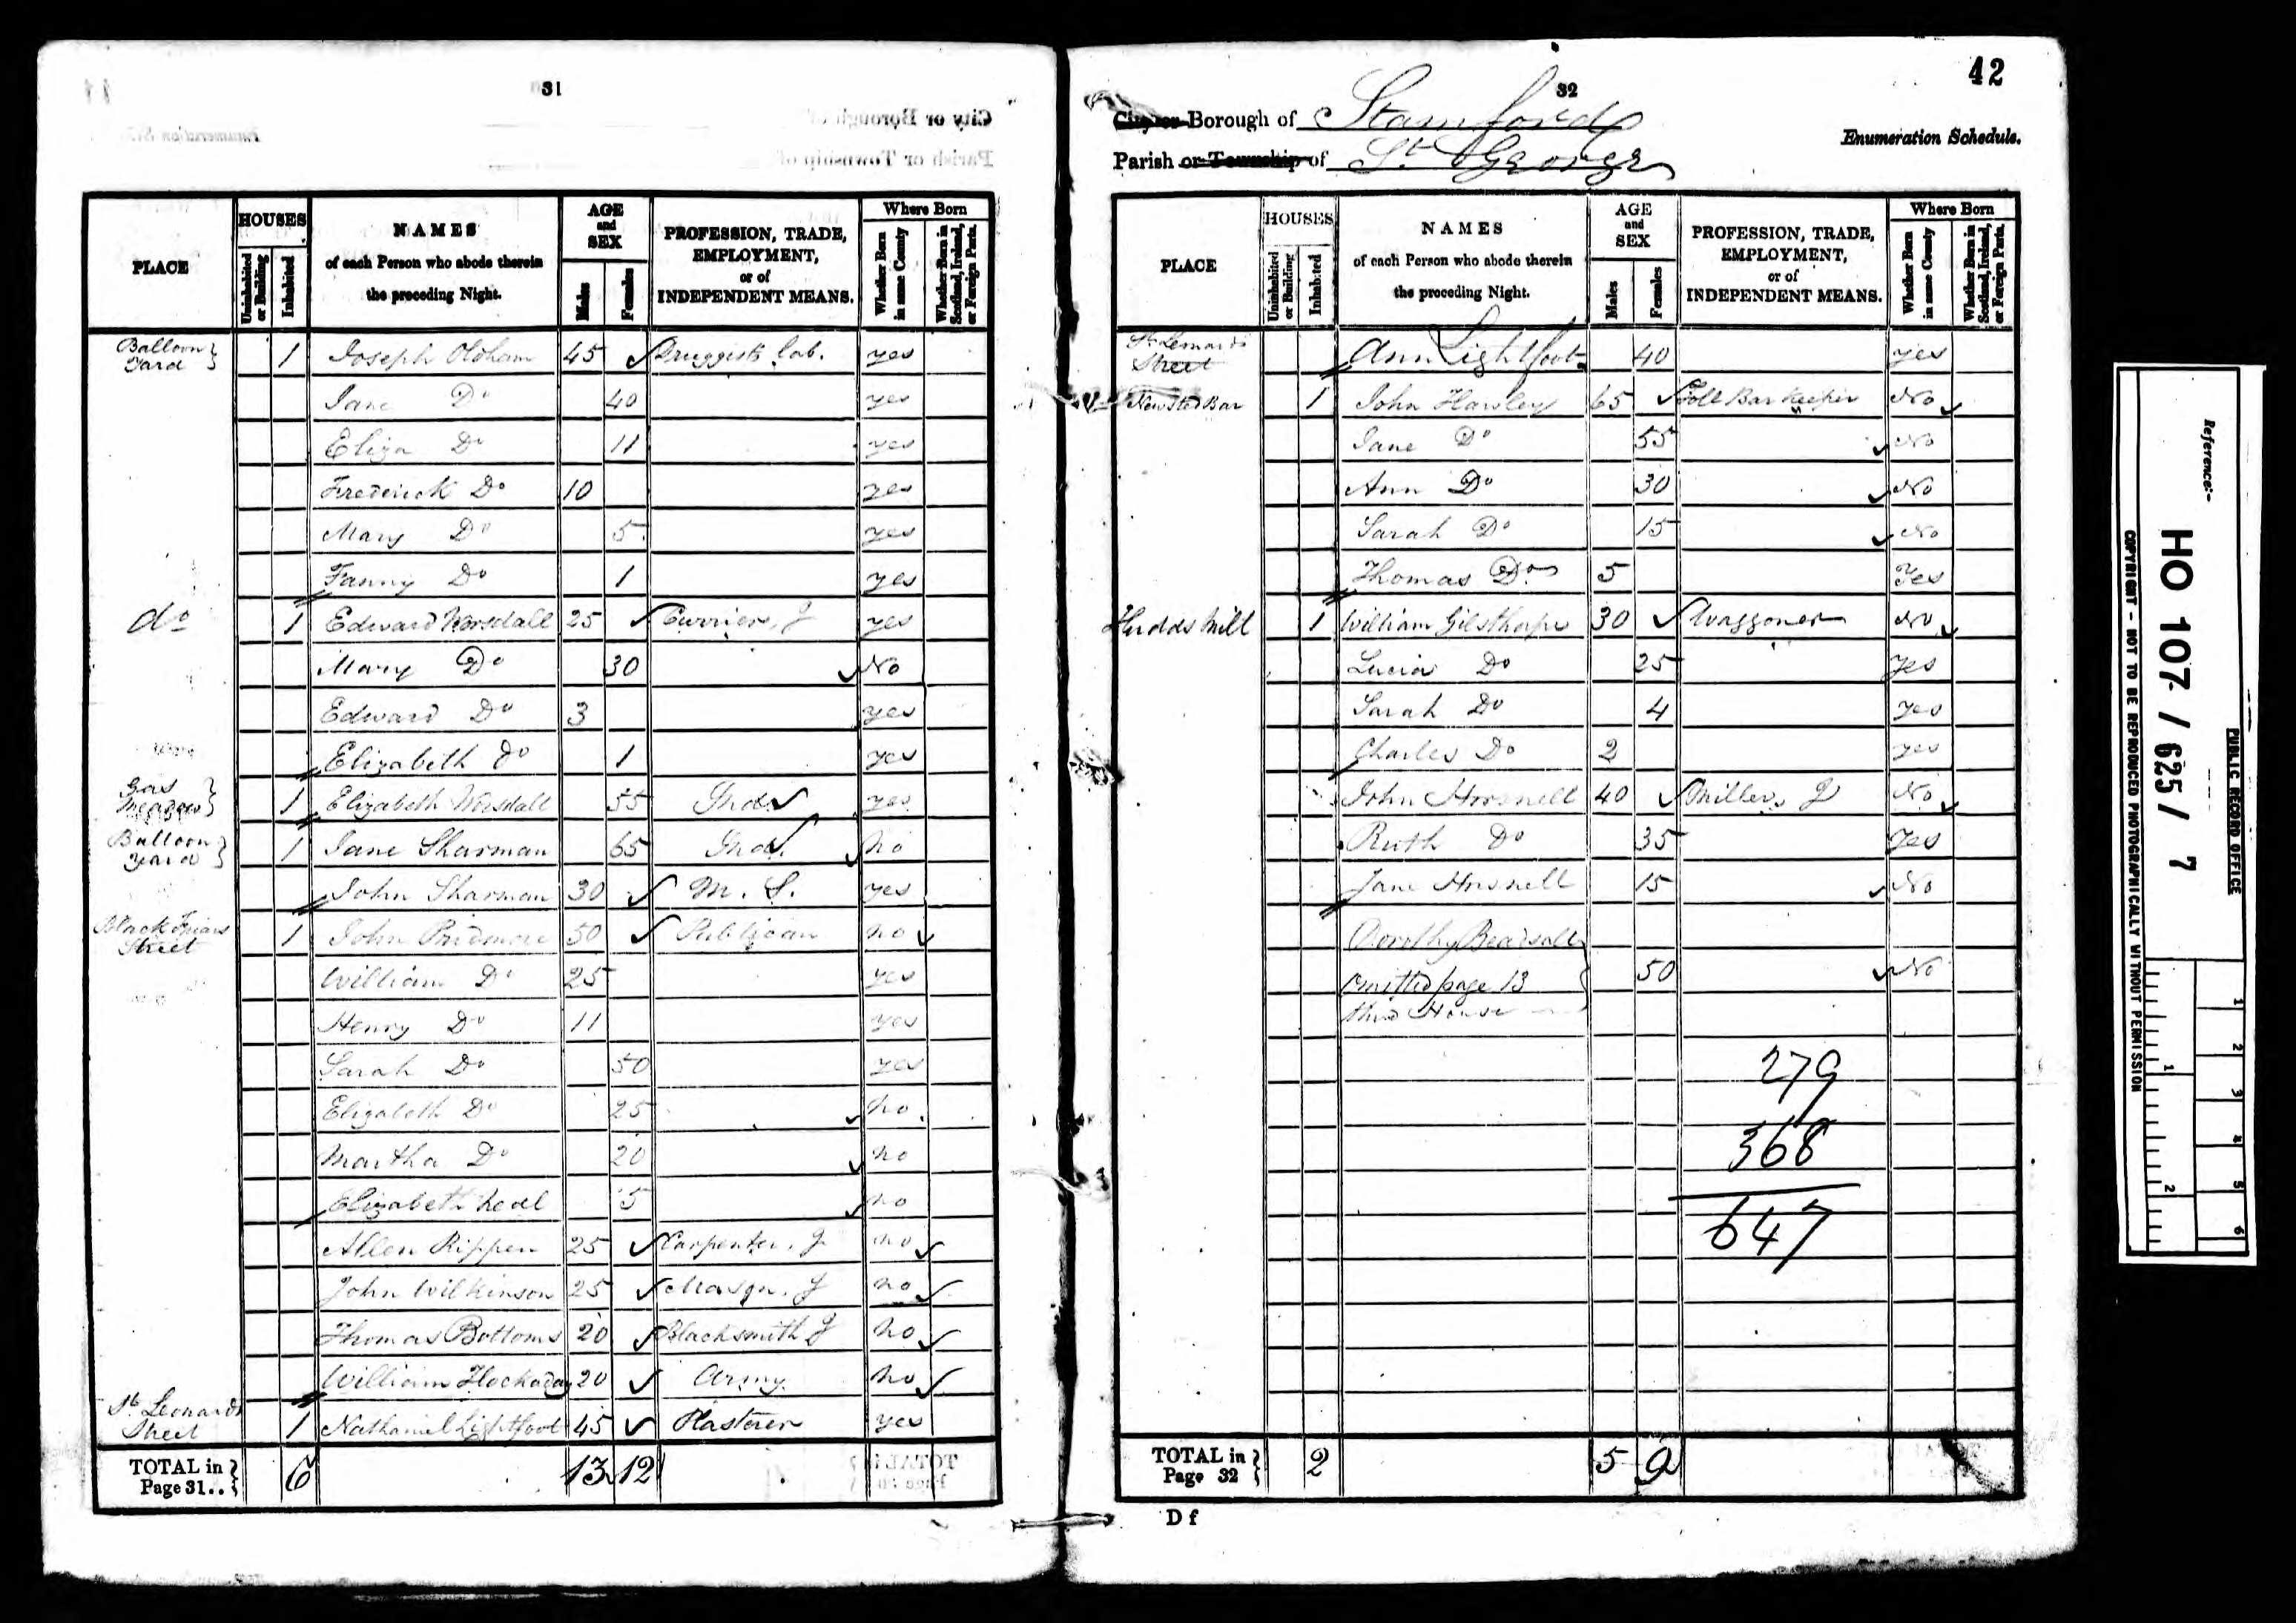 31
NAMES
of each Person who abode therein
the preceding Night.
PLACE
HOUSES
Uninhabited or Building
Inhabited
AGE and SEX
Males
Females
PROFESSION, TRADE,
EMPLOYMENT,
or of
INDEPENDENT MEANS.
Where Born
Whether Born in same County
Whether Born in Scotland, Ireland, or Foreign Parts.
Balloon Yard 1 Joseph Oldham 45 Druggists lab. yes
Jane Do 40 yes
Eliza Do 11 yes
Frederick Do 10 yes
Mary Do 5 yes
Fanny Do 1 yes
do 1 Edward Worsdall 25 Currier, J yes
Mary Do 30 No
Edward Do 3 yes
Elizabeth do 1 yes
Gas Meadow 1 Elizabeth Worsdall 55 Ind yes
Balloon Yard 1 Jane Sharman 65 Ind. No
John Sharman 30 M. S. yes
Black Friars Street 1 John Pridmore 50 Publican no
William Do 25 yes
Henry Do 11 yes
Sarah Do 50 yes
Elizabeth Do 25 no.
Martha Do 20 no
Elizabeth 5 no
Allen Rippen 25 Carpenter. J no
John Wilkinson 25 Mason. J no
Thomas Bottoms 20 Blacksmith J no
William Hockaday 20 Army no
St Leonards Street 1 Nathaniel Lightfoot 45 Plasterer yes
TOTAL in Page 31.. 6 13 12
42
32
City or Borough of Stamford
Parish or Township of St George
Enumeration Schedule.
PLACE
HOUSES
Uninhabited or Building
Inhabited
NAMES
of each Person who abode therein
the preceding Night.
AGE and SEX
Males
Females
PROFESSION, TRADE,
EMPLOYMENT,
or of
INDEPENDENT MEANS.
Where Born
Whether Born in same County
Whether Born in Scotland, Ireland, or Foreign Parts.
St Leonards Street Ann Lightfoot 40 yes
Newsted Bar 1 John Harsley 65 Toll Bar Keeper No
Jane Do 55 No
Ann Do 30 No
Sarah Do 15 No
Thomas Do 5 Yes
Hudds Mill 1 William Gilsthorpe 30 Waggoner No
Lucia Do 25 Yes
Sarah Do 4 Yes
Charles Do 2 yes
John Horsnell 40 Miller, J No
Ruth Do 35 Yes
Jane Horsnell 15 No
Dorothy Beadsall
omitted page 13 50 No
third House
279
368
647
TOTAL in Page 32 2 5 9
D f
Reference:-
HO 107 / 625 / 7
PUBLIC RECORD OFFICE
COPYRIGHT - NOT TO BE REPRODUCED PHOTOGRAPHICALLY WITHOUT PERMISSION
1 2 3 4 5 6
1 2